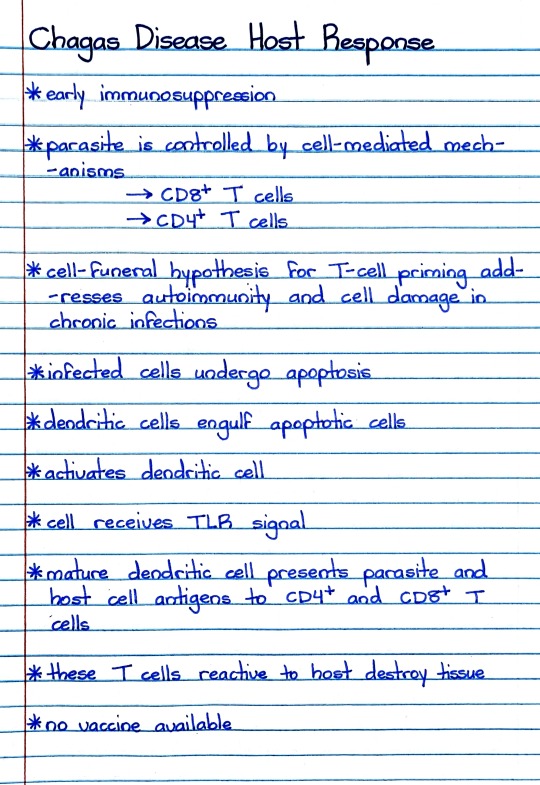 Chagas Disease Host Response
* early immunosuppression
* parasite is controlled by cell-mediated mech-
-anisms
→ CD8+ T cells
→ CD4+ T cells
* cell-funeral hypothesis for T-cell priming add-
-resses autoimmunity and cell damage in
chronic infections
* infected cells undergo apoptosis
* dendritic cells engulf apoptotic cells
* activates dendritic cell
* cell receives TLR signal
* mature dendritic cell presents parasite and
host cell antigens to CD4+ and CD8+ T
cells
* these T cells reactive to host destroy tissue
* no vaccine available